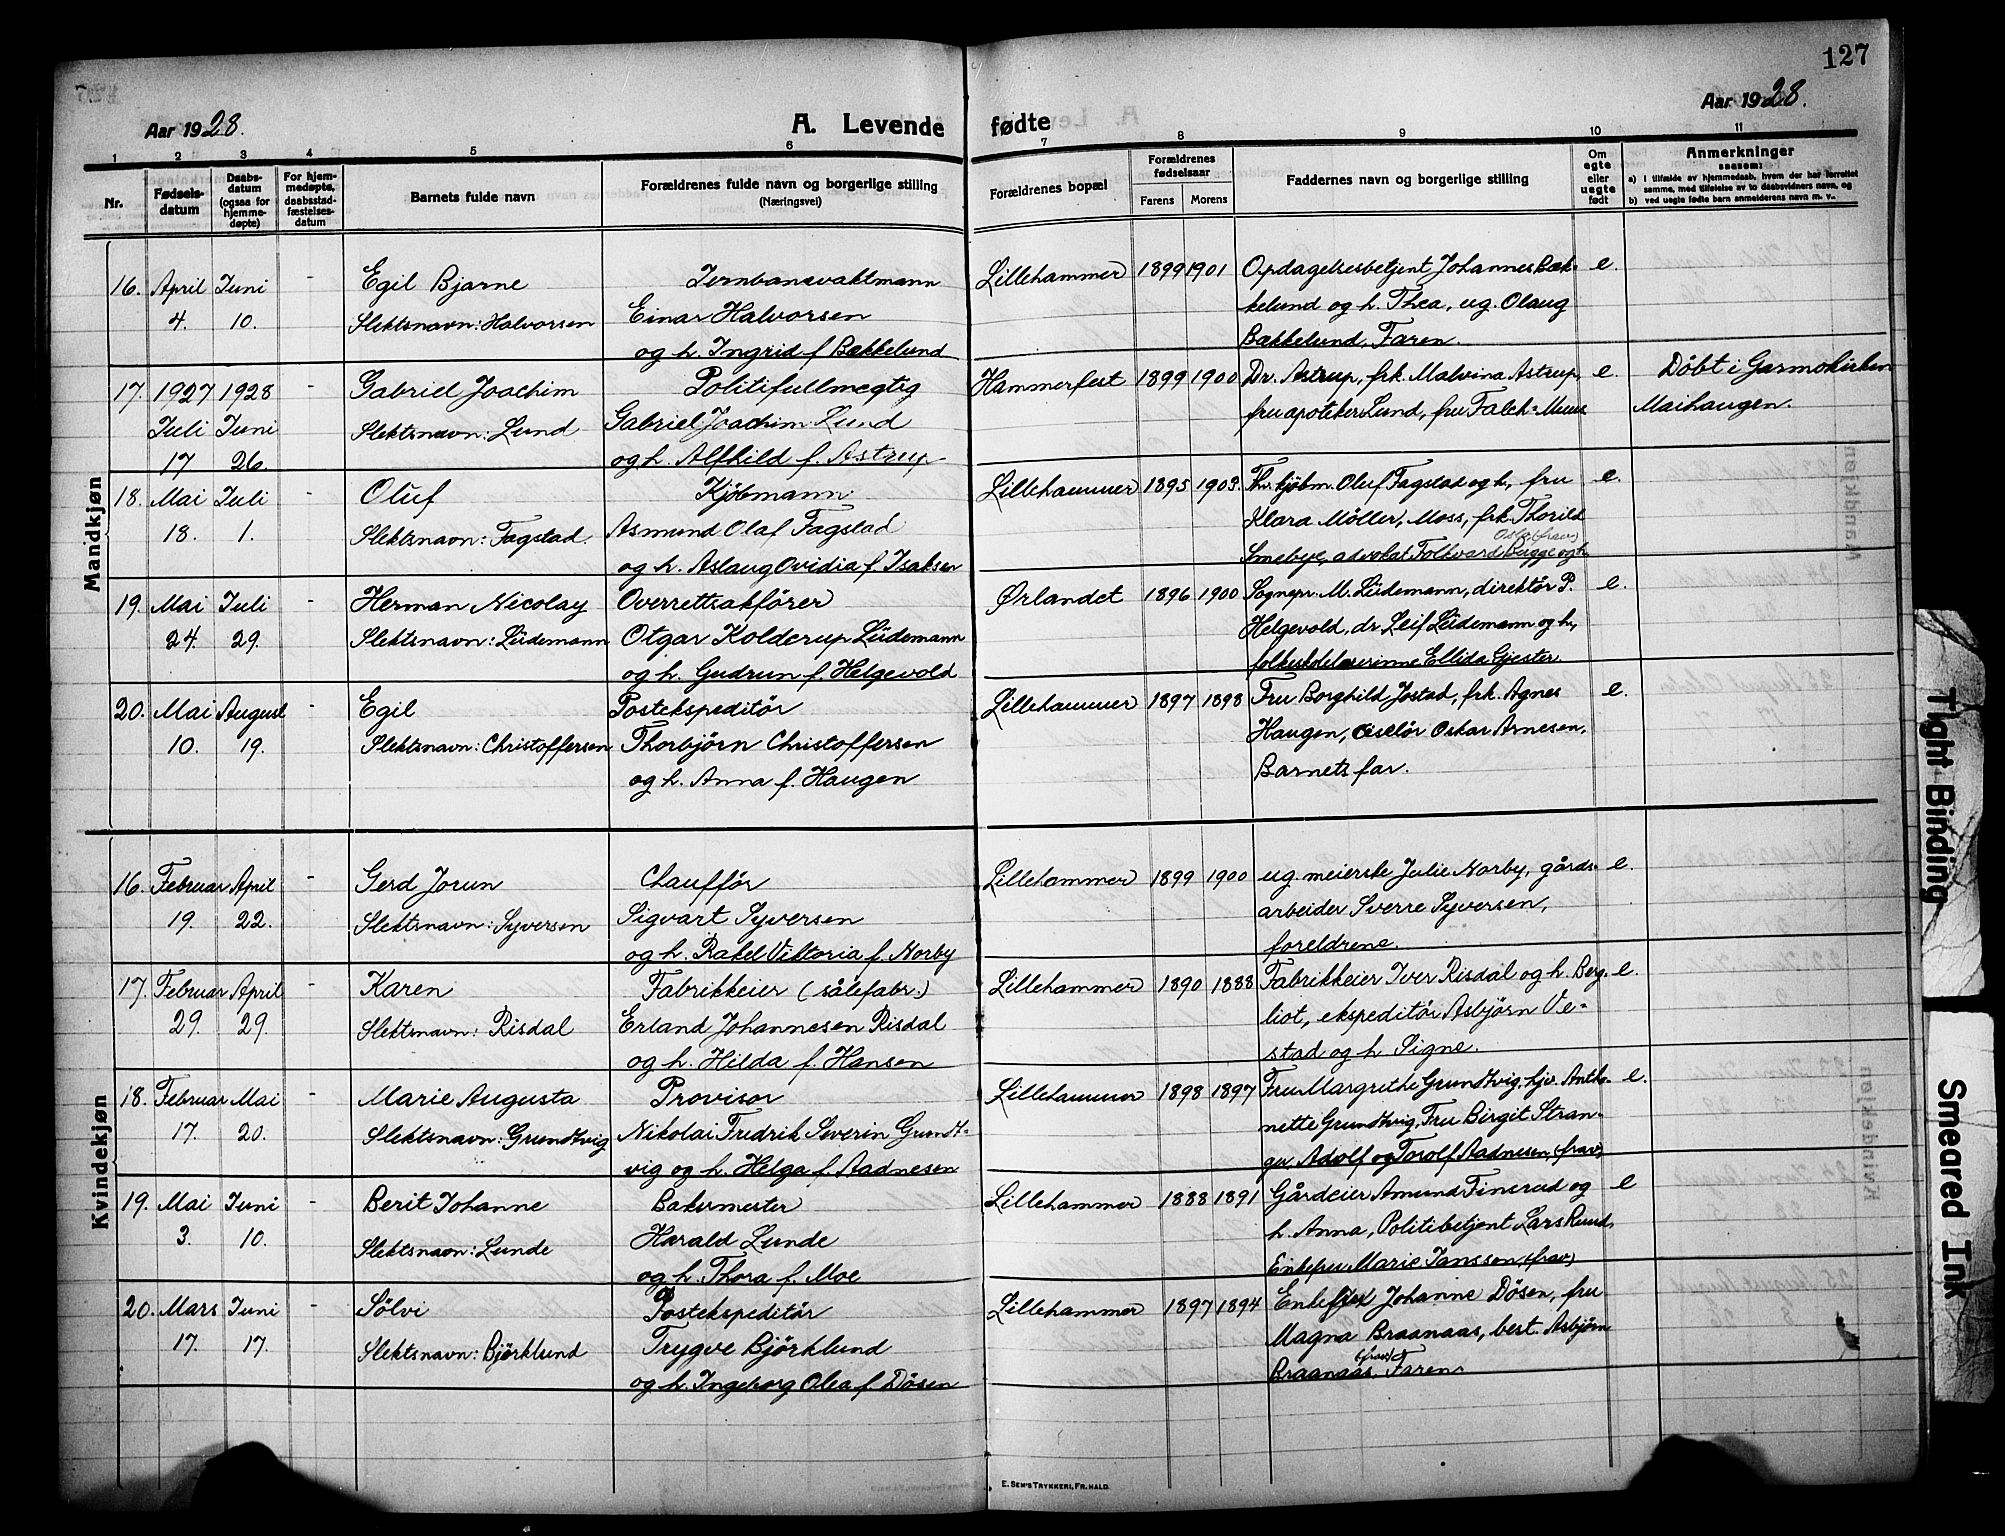 127
Aar 1928. A. Levende fødte Aar 1928.
1 2 3 4 5 6 7 8 9 10 11
Nr. Fødsels-datum Daabs-datum (ogsaa for hjemme-døpte) For hjem-medøpte, daabsstad-fæstelses-datum Barnets fulde navn Forældrenes fulde navn og borgerlige stilling (Næringsvei) Forældrenes bopæl Forældrenes fødselsaar Farens Morens Faddernes navn og borgerlige stilling Om egte eller uegte født Anmerkninger saasom:
a) i tilfælde av hjemmedaab, hvem der har forrettet samme, med tilføielse av to daabsvidners navn, og
b) ved uegte fødte barn anmelderens navn m. v.
Mandkjøn
16. April Juni - Egil Bjarne Jernbanevaktmann Lillehammer 1899 1901 Opdagelsesbetjent Johannes Bæk- e.
4. 10. Slektsnavn: Halvorsen Einar Halvorsen kelund og h. Thea, ug. Olaug
og h. Ingrid f. Bækkelund Bækkelund, Faren.
17. 1927 1928 - Gabriel Joachim Politifullmegtig Hammerfest 1899 1900 Dr. Astrup, frk. Malvina Astrup, e. Döbt i Garmokirken
Juli Juni Slektsnavn: Lund Gabriel Joachim Lund fru apoteker Lund, fru Falck-Muus Maihaugen.
17 26. og h. Alfhild f. Astrup
18. Mai Juli - Oluf Kjöbmann Lillehammer 1895 1903. Thv. kjöbm. Oluf Fagstad og h, fru e.
18. 1. Slektsnavn: Fagstad. Asmund Olaf Fagstad Klara Möller, Moss, frk. Thorild
Oslo (frav)
og h. Aslaug Ovidia f. Isaksen Smebye, advokat Folkvard Bugge og h
19. Mai Juli - Herman Nicolay Overrettsakförer Ørlandet 1896 1900 Sognepr. M. Lüdemann, direktör P. e.
24 29. Slektsnavn: Lüdemann Otgar Kolderup Lüdemann Helgevold, dr. Leif Lüdemann og h,
og h. Gudrun f. Helgevold folkeskolelærerinne Ellida Gjester
20. Mai August - Egil Postekspeditör Lillehammer 1897 1898 Fru Borghild Jostad, frk. Agnes e.
10. 19. Slektsnavn: Christoffersen Thorbjörn Christoffersen Haugen, ciselör Oskar Arnesen,
og h. Anna f. Haugen Barnets far.
Kvindekjøn
16. Februar April - Gerd Jorun Chafför Lillehammer 1899 1900 ug. meierske Julie Norby, gårds- e.
19. 22. Slektsnavn: Syversen Sigvart Syversen arbeider Sverre Syversen,
og h. Rakel Viktoria f. Norby foreldrene.
17. Februar April - Karen Fabrikkeier (sålefabr.) Lillehammer 1890 1888 Fabrikkeier Iver Risdal og h. Berg- e.
29. 29. Slektsnavn: Risdal Erland Johannesen Risdal liot, ekspeditör Asbjörn Ve-
og h. Hilda f. Hansen stad og h Signe.
18. Februar Mai - Marie Augusta Provisor Lillehammer 1898 1897 Fru Margrethe Grundtvig, hjv. Antho- e.
17. 20. Slektsnavn: Grundtvig Nikolai Fredrik Severin Grundt- nette Grundtvig, Fru Birgit Stran-
vig og h. Helga f. Aadnesen ger, Adolf og Torolf Aadnesen, (frav)
19. Mai Juni - Berit Johanne Bakermester Lillehammer 1888 1891 Gårdeier Amund Finerud og e
3. 10. Slektsnavn: Lunde Harald Lunde h. Anna, Politibetjent Lars Ruud,
og h. Thora f. Moe Enkefru Marie Janssen, (frav)
20. Mars Juni - Sölvi Postekspeditör Lillehammer 1897 1894 Johanne Dösen, fru
17. 17. Slektsnavn: Björklund Trygve Björklund Magna Braanaas, best. Asbjörn
(frav)
og h. Ingeborg Olea f. Dösen Braanaas, Faren
E. SEM'S TRYKKERI, FR.HALD.
Tight Binding
Smeared Ink